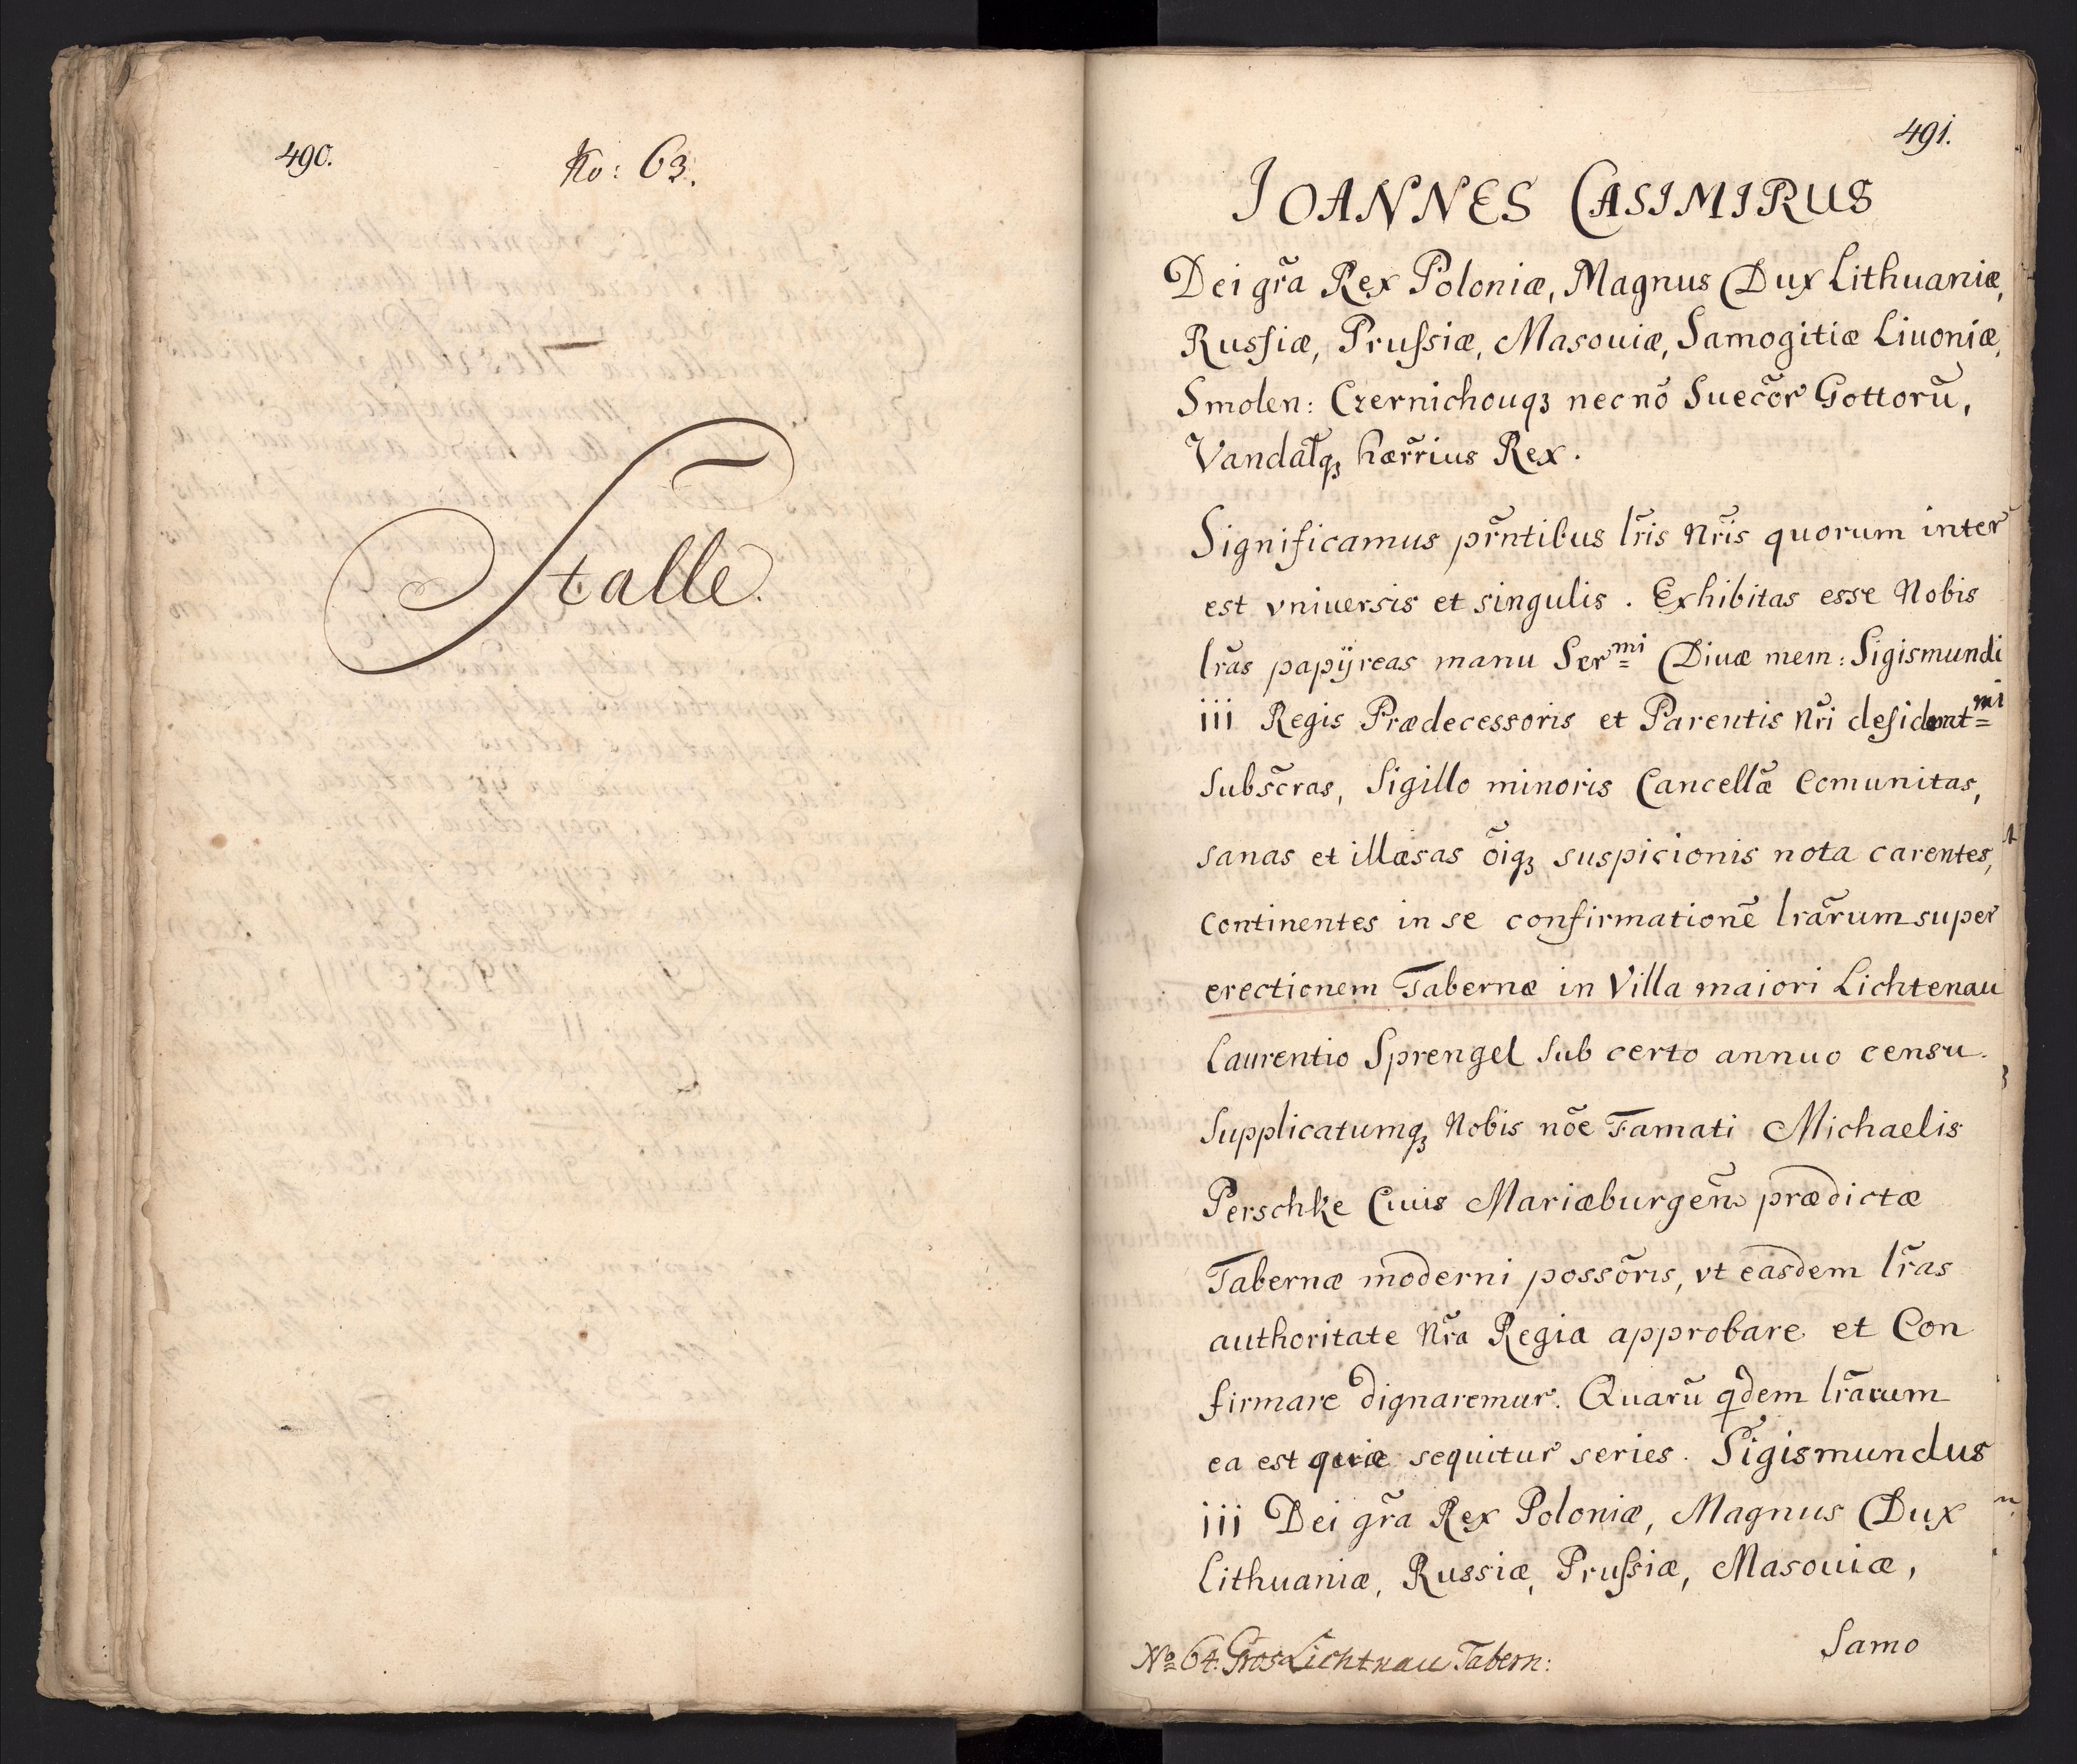 490.
No: 63.
Stalle.
491.
IOANNES CASIMIRUS
Dei gr̃a Rex Poloniæ, Magnus Dux Lithuaniæ,
Russiæ, Prussiæ, Masouiæ, Samogitiæ Liuoniæ,
Smolen: Czernichouqꝫ necnõ Suecõr Gottorũ,
Vandal̃qꝫ hær̃rius Rex.
Significamus pr̃ntibus lr̃is Nr̃is quorum inter
est vniuersis et singulis. Exhibitas esse Nobis
lr̃as papÿreas manu Ser^mi Diuæ mem: Sigismundi
iii Regis Prædecessoris et Parentis Nr̃i desiderat^mi
Subsc̃ras, Sigillo minoris Cancellã Comunitas,
sanas et illæsas õiqꝫ suspicionis nota carentes,
Continentes in se confirmationẽ lrãrum super
erectionem Tabernæ in Villa maiori Lichtenau
Laurentio Sprengel sub certo annuo censu.
Supplicatumqꝫ Nobis nõe Famati Michaelis
Perschke Ciuis Mariæburgeñ prædictæ
Tabernæ moderni possõris, vt easdem lr̃as
authoritate Nr̃a Regia approbare et Con
firmare dignaremur. Quarũ qdem lrãrum
ea est quæ sequitur series. Sigismundus
iii Dei gr̃a Rex Poloniæ, Magnus Dux
Lithuaniæ, Russiæ, Prussiæ, Masouiæ,
Samo
No 64. Gros Lichtnau Tabern: